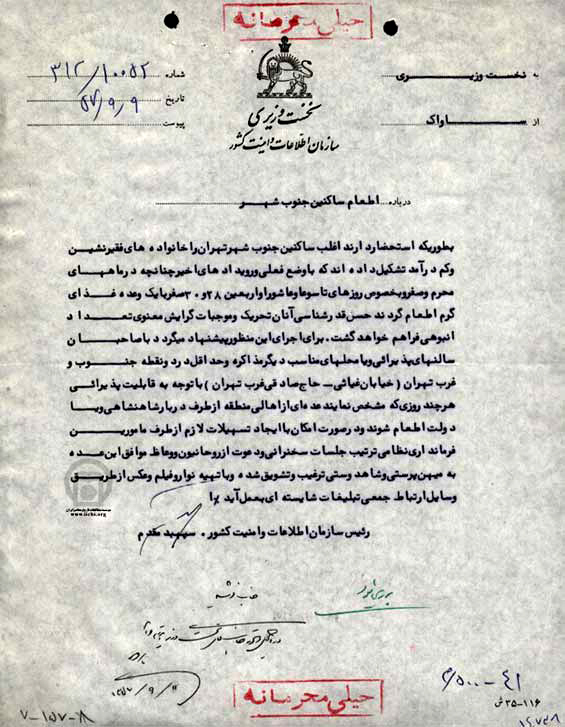 خیلی محرمانه
به نخست وزیری
شماره ۳۱۲/۱۰۰۵۲
تاریخ ۵۷/۹/۹
از ساواک
پیوست
نخست وزیری
سازمان اطلاعات و امنیت کشور
درباره اطعام ساکنین جنوب شهر
بطوریکه استحضار دارند اغلب ساکنین جنوب شهر تهران را خانواده های فقیرنشین
وکم درآمد تشکیل داده اند که با وضع فعلی و رویدادهای اخیر چنانچه در ماههای
محرم وصفر و بخصوص روزهای تاسوعا وعاشورا و اربعین ۲۸ و ۳۰ صفر با یک وعده غذای
گرم اطعام گردند حسن قدرشناسی آنان تحریک و موجبات گرایش معنوی تعداد
انبوهی فراهم خواهد گشت . برای اجرای این منظور پیشنهاد میگردد با صاحبان
سالنهای پذیرائی ویا محلهای مناسب دیگر مذاکره وحد اقل در دو نقطه جنوب و
غرب تهران ( خیابان غیاثی - حاج صادقی غرب تهران ) با توجه به قابلیت پذیرائی
هر چند روزی که مشخص نمایند عده ای از اهالی منطقه از طرف دربار شاهنشاهی ویا
دولت اطعام شوند و در صورت امکان با ایجاد تسهیلات لازم از طرف مامورین
فرمانداری نظامی ترتیب جلسات سخنرانی و دعوت از روحانیون و وعاظ موافق این عده
به میهن پرستی وشاهدوستی ترغیب و تشویق شده و با تهیه نوار و فیلم و عکس از طریق
وسایل ارتباط جمعی تبلیغات شایسته ای بعمل آید
رئیس سازمان اطلاعات و امنیت کشور . سپهبد مقدم
www.iichs.org
۱۳۵۷/۹/۱۱
خیلی محرمانه
۴۱-۵۰۰/م
۱۱۶-۳۵ ش
۷-۱۵۷-۸